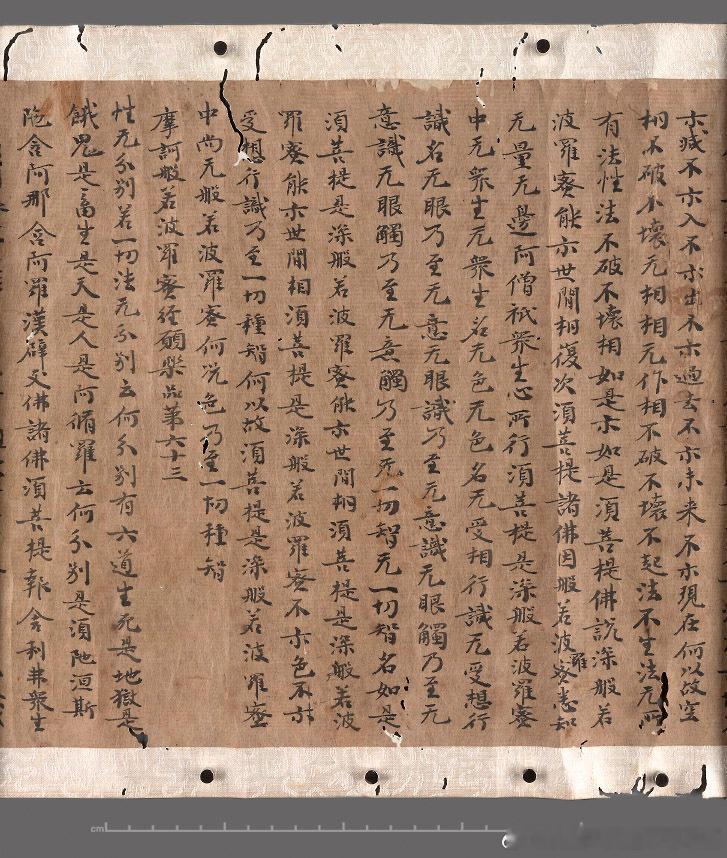 示滅不示入不示出不示過去不示未来不示現在何以故空
相不破不壞无相相无作相不破不壞不起法不生法无所
有法性法不破不壞相如是示如是須菩提佛說深般若
波羅蜜能示世間相復次須菩提諸佛因般若波羅蜜悉知
无量无邊阿僧祇衆生心所行須菩提是深般若波羅蜜
中无衆生无衆生名无色无色名无受相行識无受想行
識名无眼乃至无意无眼識乃至无意識无眼觸乃至无
意識无眼觸乃至无意觸乃至无一切智无一切智名如是
須菩提是深般若波羅蜜能示世間相須菩提是深般若波
羅蜜能示世間相須菩提是深般若波羅蜜不示色不示
受想行識乃至一切種智何以故須菩提是深般若波羅蜜
中尚无般若波羅蜜何况色乃至一切種智
摩訶般若波羅蜜經願樂品第六十三
性无分別若一切法无分別云何分別有六道生死是地獄是
餓鬼是畜生是天是人是阿脩羅云何分別是須陁洹斯
陁含阿那含阿羅漢辟支佛諸佛須菩提報舍利弗衆生